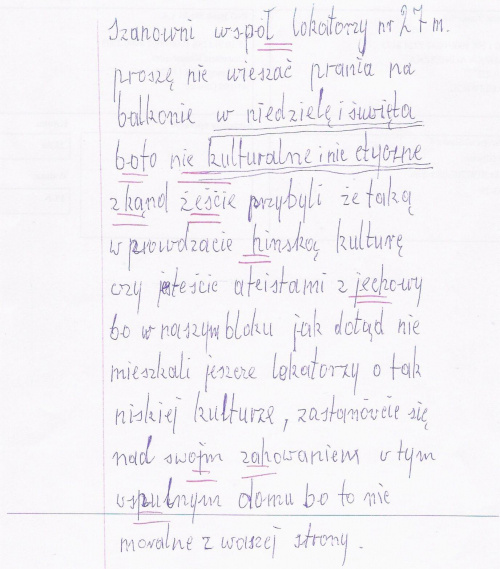 Szanowni współ lokatorzy nr 27 m.
proszę nie wieszać prania na
balkonie w niedzielę i święta
boto nie kulturalne i nie etyczne
z kąnd żeście przybyli że taką
wprowdzacie hinską kulturę
czy jeteście ateistami z jechowy
bo w naszym bloku jak dotąd nie
mieszkali jeszcze lokatorzy o tak
niskiej kulturze, zastanówcie się
nad swojm zahowaniem w tym
wspulnym domu bo to nie
moralne z waszej strony.